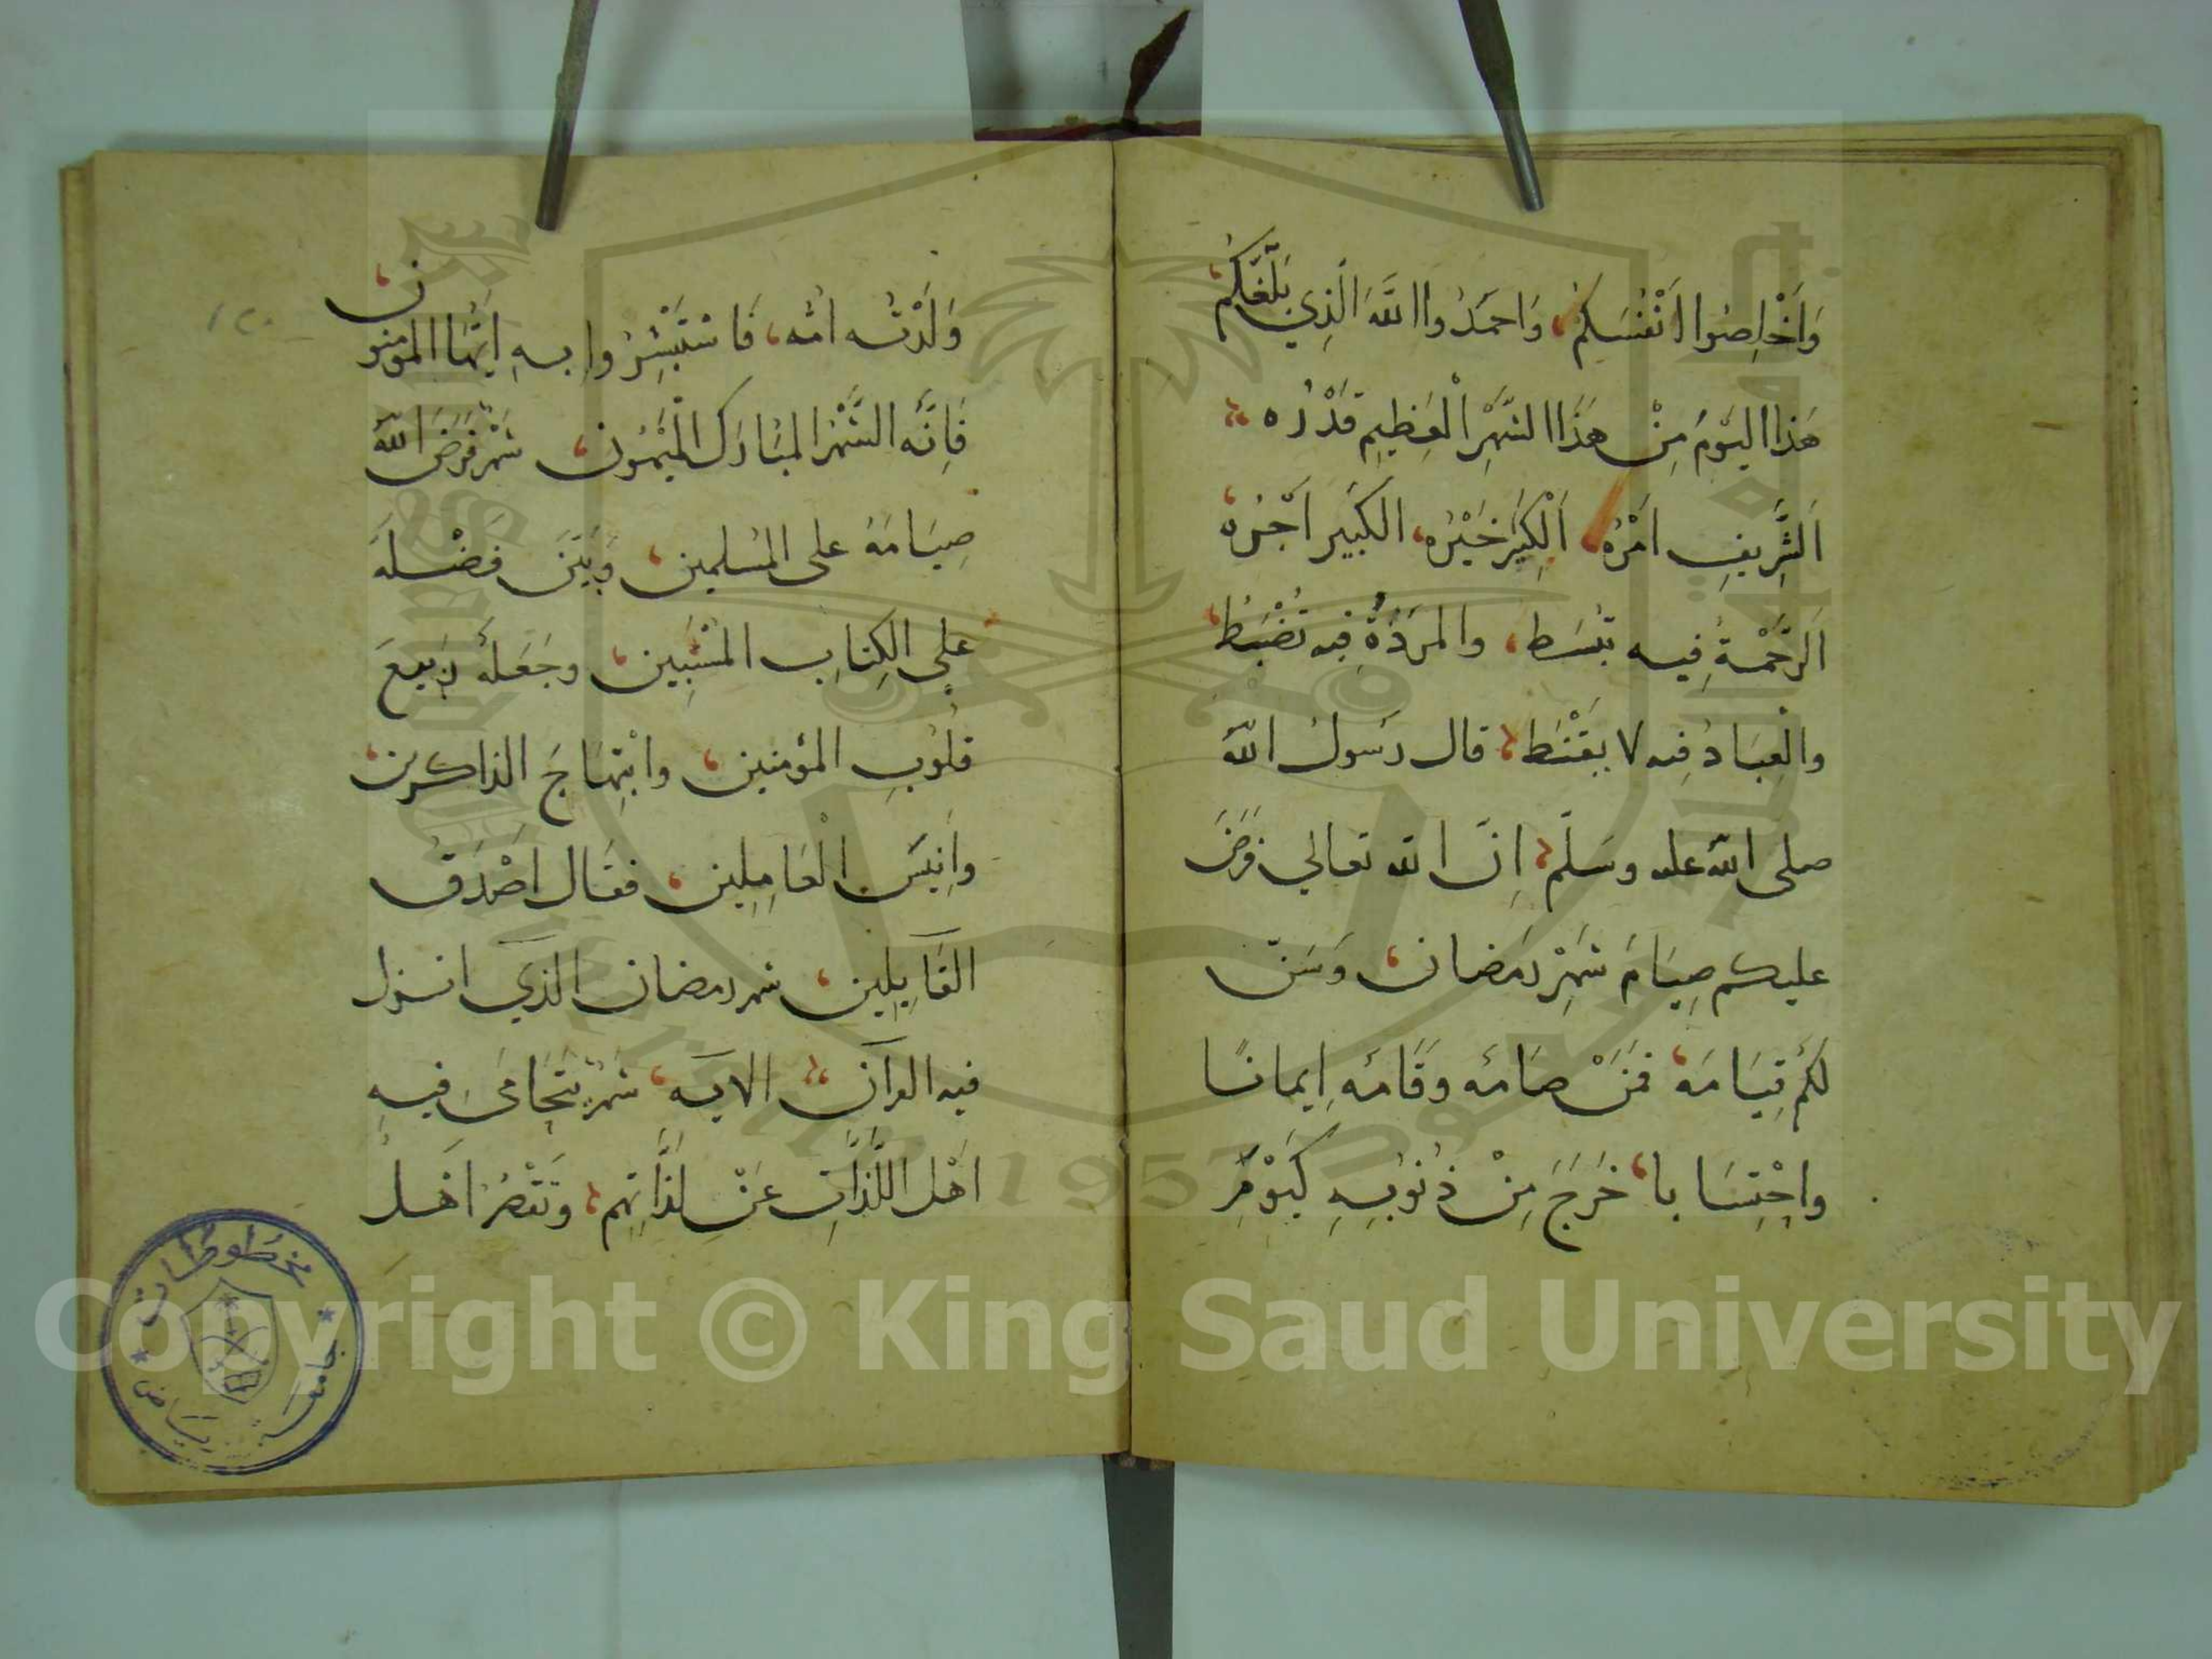 وَاَخْلِصُوا اَنْفُسَكُمْ، وَاحمَدُوا اللَّهَ الَّذِي بَلَّغَكُم،
هَذا اليَوْمُ مِنْ هَذَا الشَّهْرِ الْعَظِيمِ قَدْرُه
اَلشَّرِيفِ اَمْرُهُ، اَلْكَثِيرِ خَيْرُه، الكَبِير اَجْرُه،
اَلرَّحْمَةُ فِيه تبْسَط، والمَرَدَةُ فِيه تُضْبَطُ،
والْعِبَادُ فِيه لا يقْنَط، قال رَسولُ اللّه
صلى اللّه عليه وسَلَّم، اِنَّ الله تعالي فَرَضَ
عليكم صِيَامَ شَهْرَ رَمَضان، وَسَنّ
لكُم قِيَامَه، فمَنْ صَامَه وقَامَه اِيمانًا
واحْتِسَابا، خَرَجَ مِنْ ذُنُوبِهِ كَيَوْمِ
وَلَدَتْه امُّه، فَاسْتَبْشِرُوا بِهِ ايُّهَا المومنون،
فَاِنَّه الشَّهْرُ المبَارَك المَيْمُون، شَهْرٌ فَرَضَ اللّهُ
صِيَامَهُ على المُسلمين، وَبَيَّنَ فَضْلَهُ
علي الكِتابِ المُسْتَبِين، وجَعَلَهُ رَبيعَ
قلُوبِ المؤمنين، وابْتِهَاجَ الذاكرين،
واَنِيسَ الْعَامِلِين، فقَال اَصْدَقُ
القَايِلِين، شهر رمضان الذي انزل
فيه القرآن الايه، شَهْرٌ يَتَجَافَى فِيهِ
اهْل اللَّذَّاتِ عَنْ لَذَّاتِهِم، وتقْصُر اَهْلُ
مخطوطات
جامعة الرياض
Copyright © King Saud University
1957